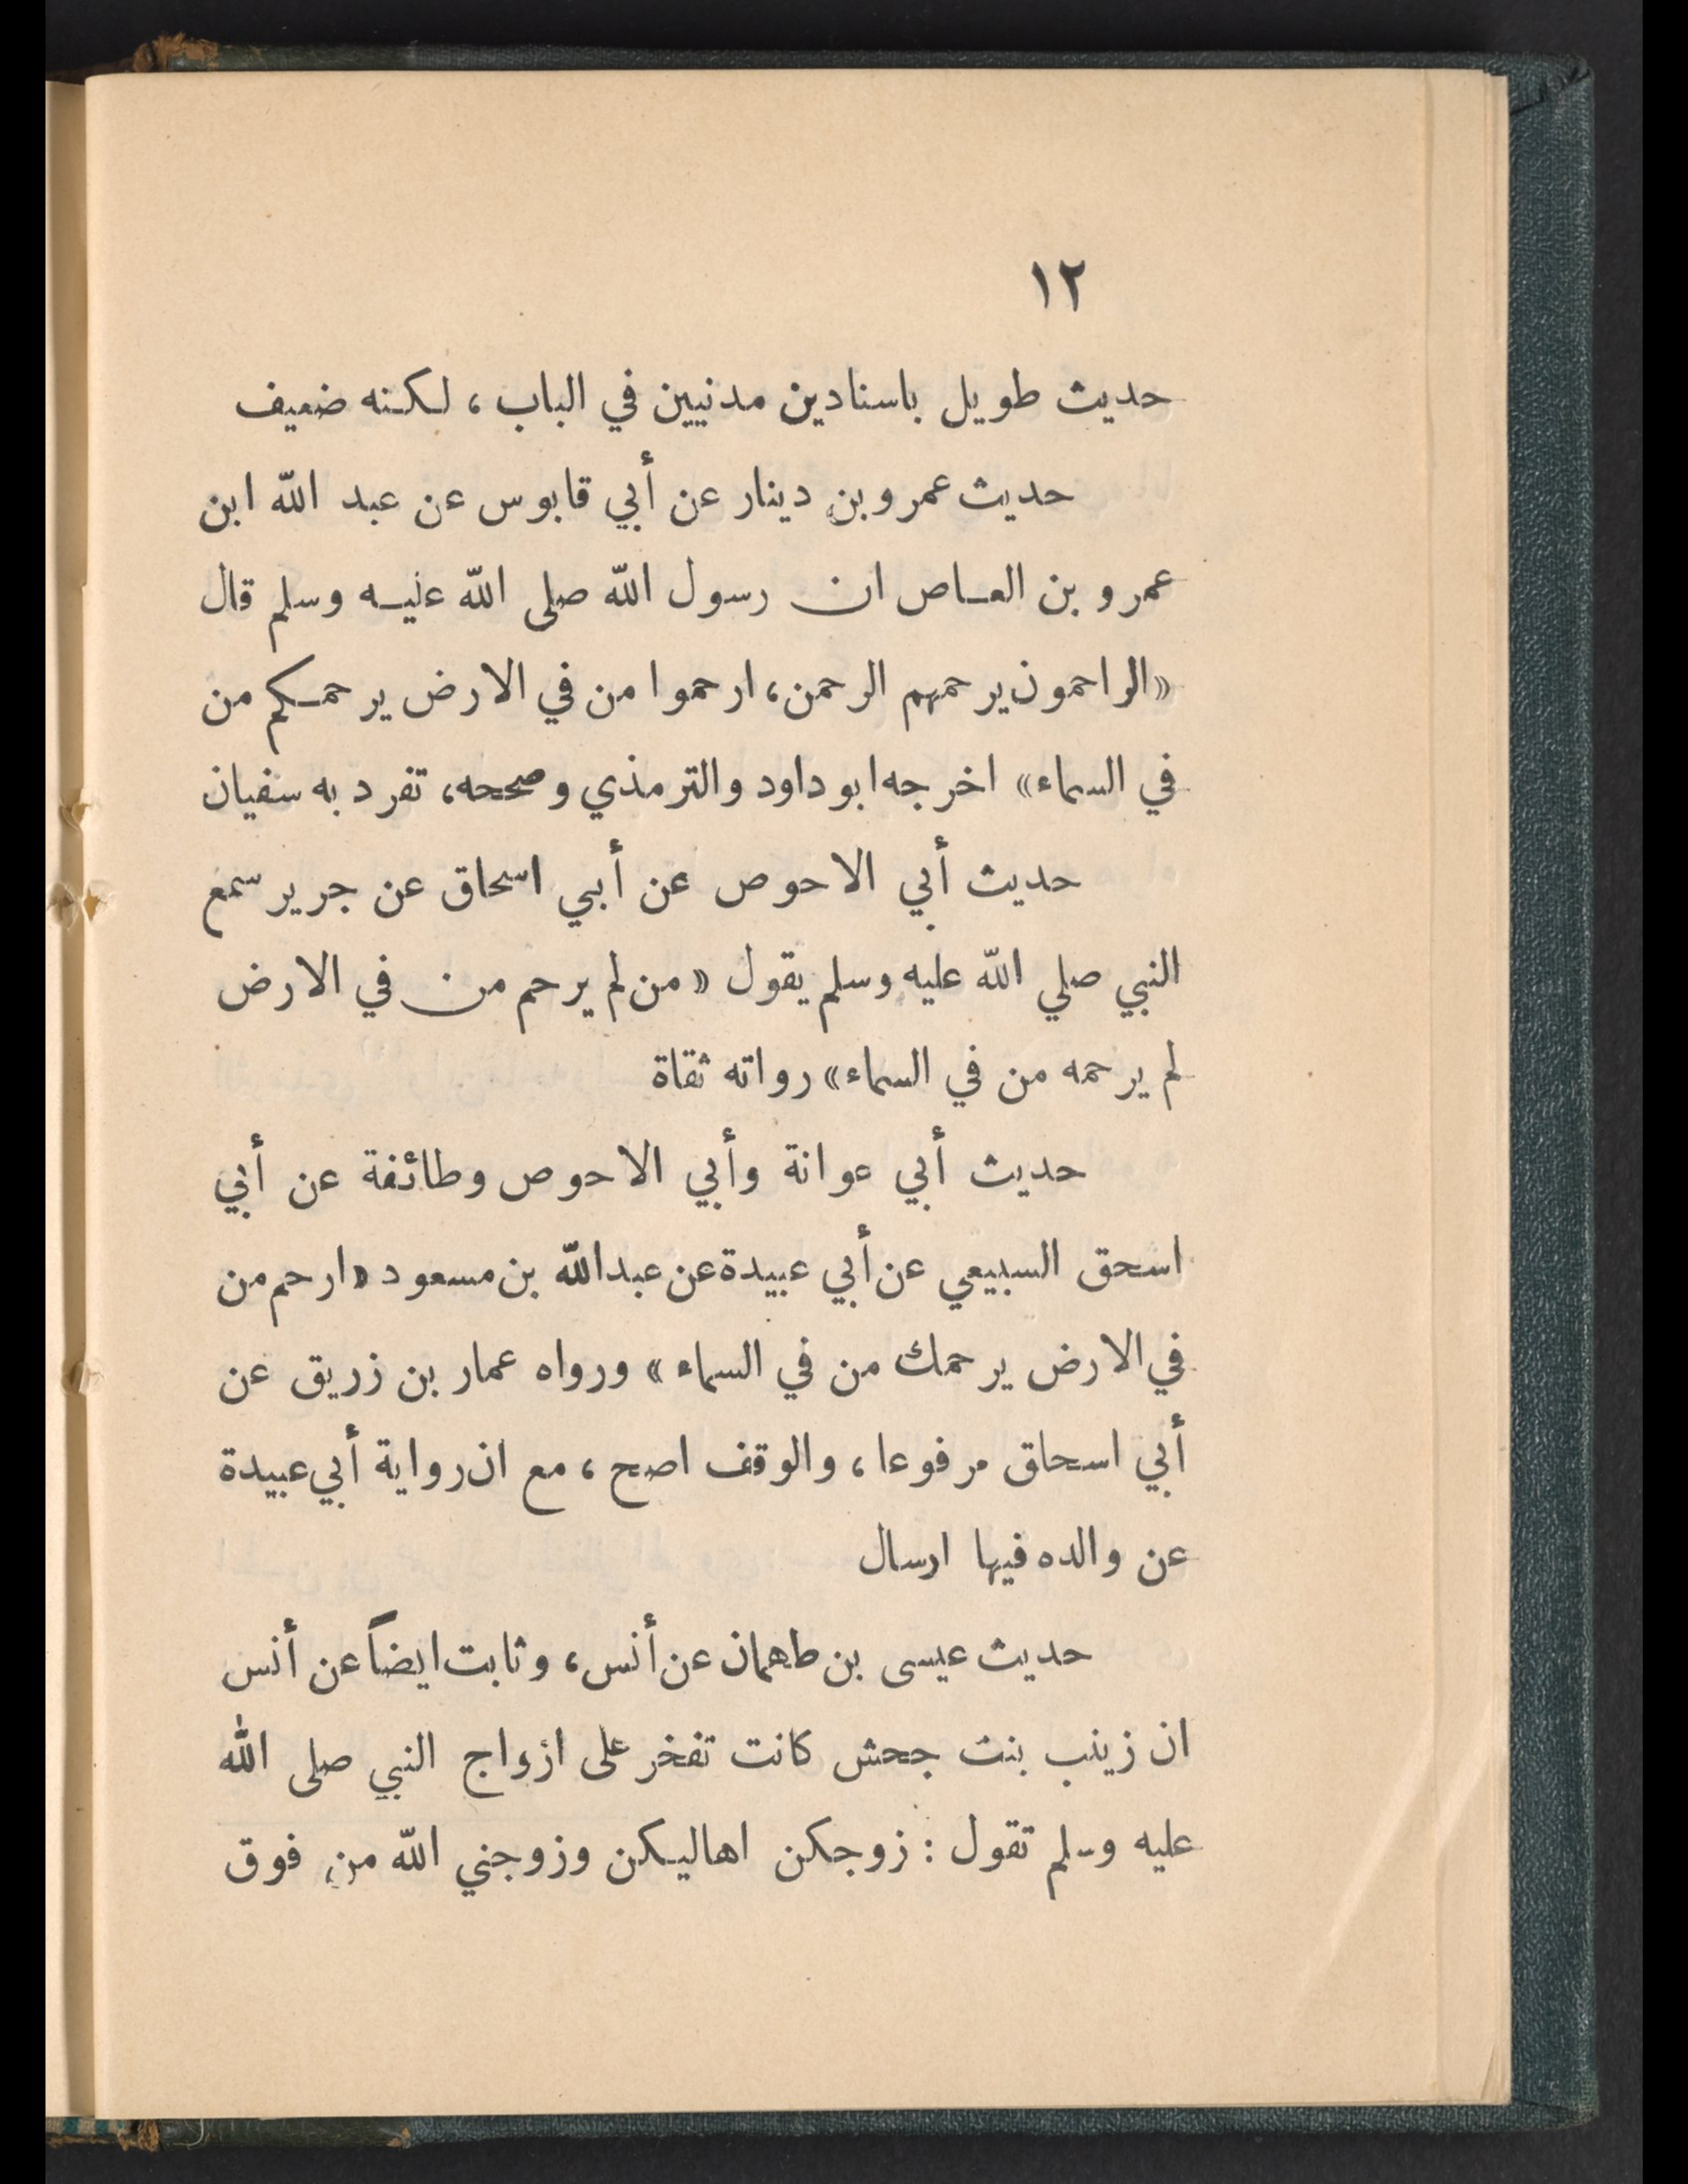 ١٢
حديث طويل باسنادين مدنيين في الباب، لكنه ضعيف
حديث عمرو بن دينار عن أبي قابوس عن عبد الله ابن
عمرو بن العاص ان رسول الله صلى الله عليه وسلم قال
«الراحمون يرحمهم الرحمن، ارحموا من في الارض يرحمكم من
في السماء» اخرجه ابو داود والترمذي وصححه، تفرد به سفيان
حديث أبي الاحوص عن أبي اسحاق عن جرير سمع
النبي صلي الله عليه وسلم يقول «من لم يرحم من في الارض
لم يرحمه من في السماء» رواته ثقاة
حديث أبي عوانة وأبي الاحوص وطائفة عن أبي
اسحق السبيعي عن أبي عبيدة عن عبد الله بن مسعود «ارحم من
في الارض يرحمك من في السماء» ورواه عمار بن زريق عن
أبي اسحاق مرفوعا، والوقف اصح، مع ان رواية أبي عبيدة
عن والده فيها ارسال
حديث عيسى بن طهمان عن أنس، وثابت ايضاً عن أنس
ان زينب بنت جحش كانت تفخر على ازواج النبي صلى الله
عليه وسلم تقول : زوجكن اهاليكن وزوجني الله من فوق